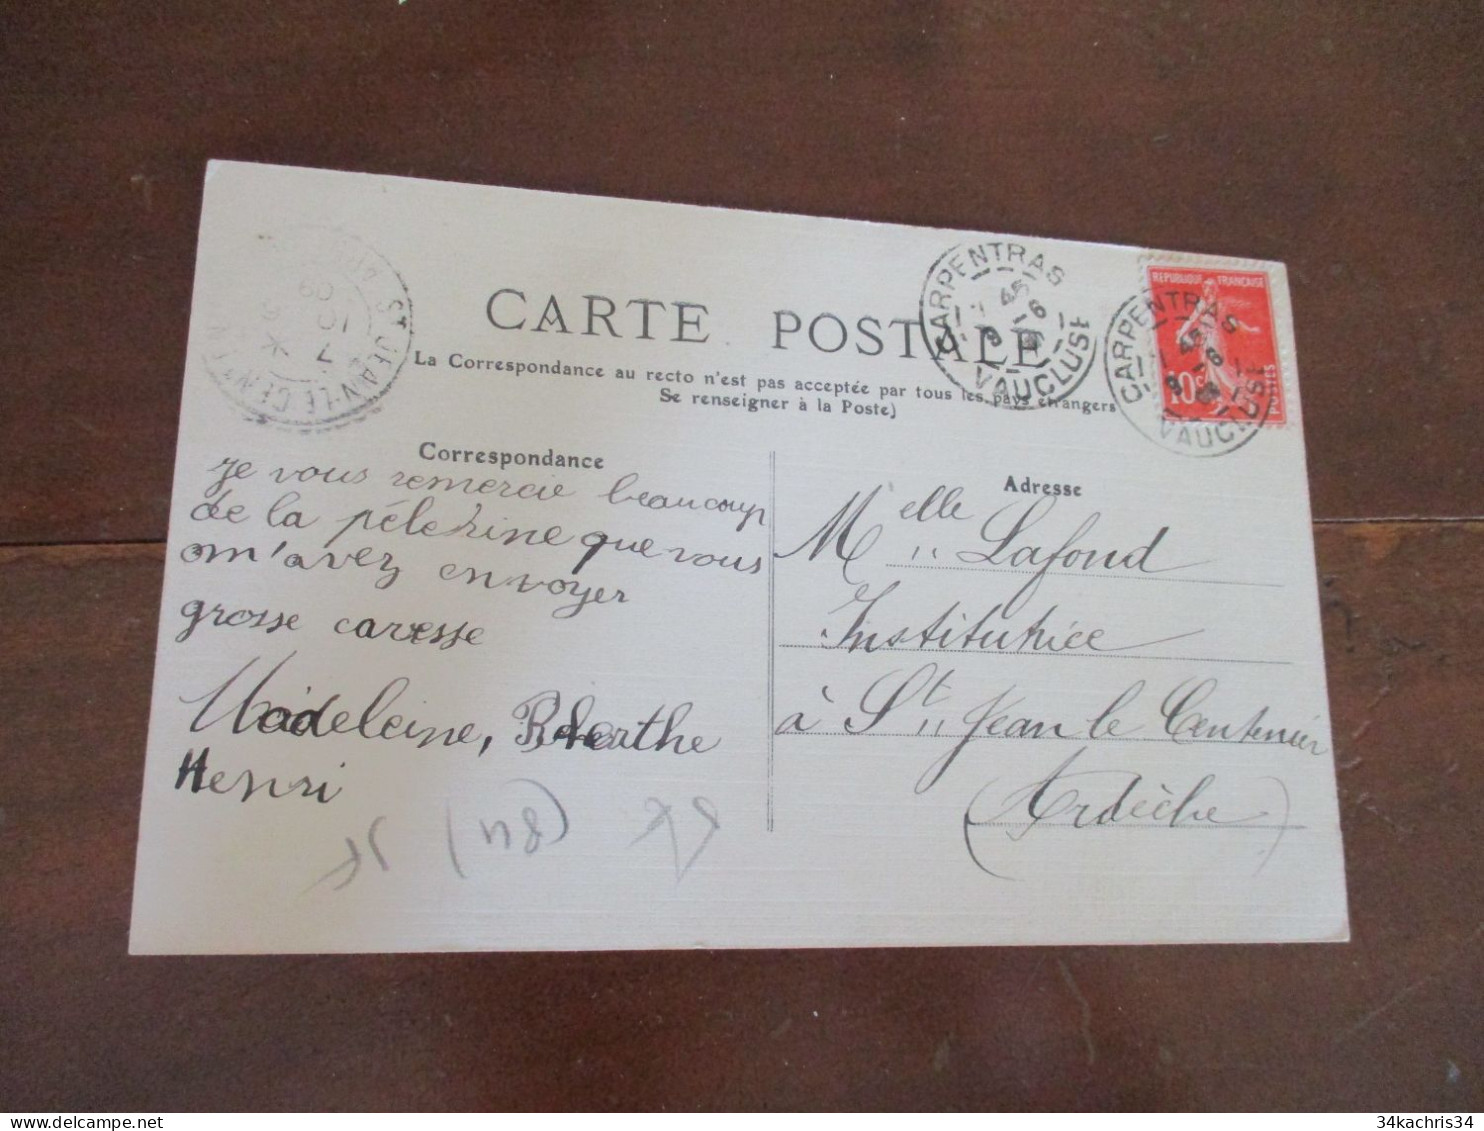 CARTE POSTALE
La Correspondance au recto n'est pas acceptée par tous les pays étrangers
Se renseigner à la Poste)
CARPENTRAS
VAUCLUSE
CARPENTRAS
VAUCLUSE
REPUBLIQUE FRANÇAISE
10c
POSTES
ST JEAN-LE-CENTENIER
7
10
09
Correspondance
je vous remercie beaucoup
de la pélerine que vous
m'avez envoyer
grosse caresse
Madeleine, Berthe
Henri
(84)
Adresse
Melle Lafond
Institutrice
à St Jean le Centenier
(Ardèche)
34kachris34
delcampe.net